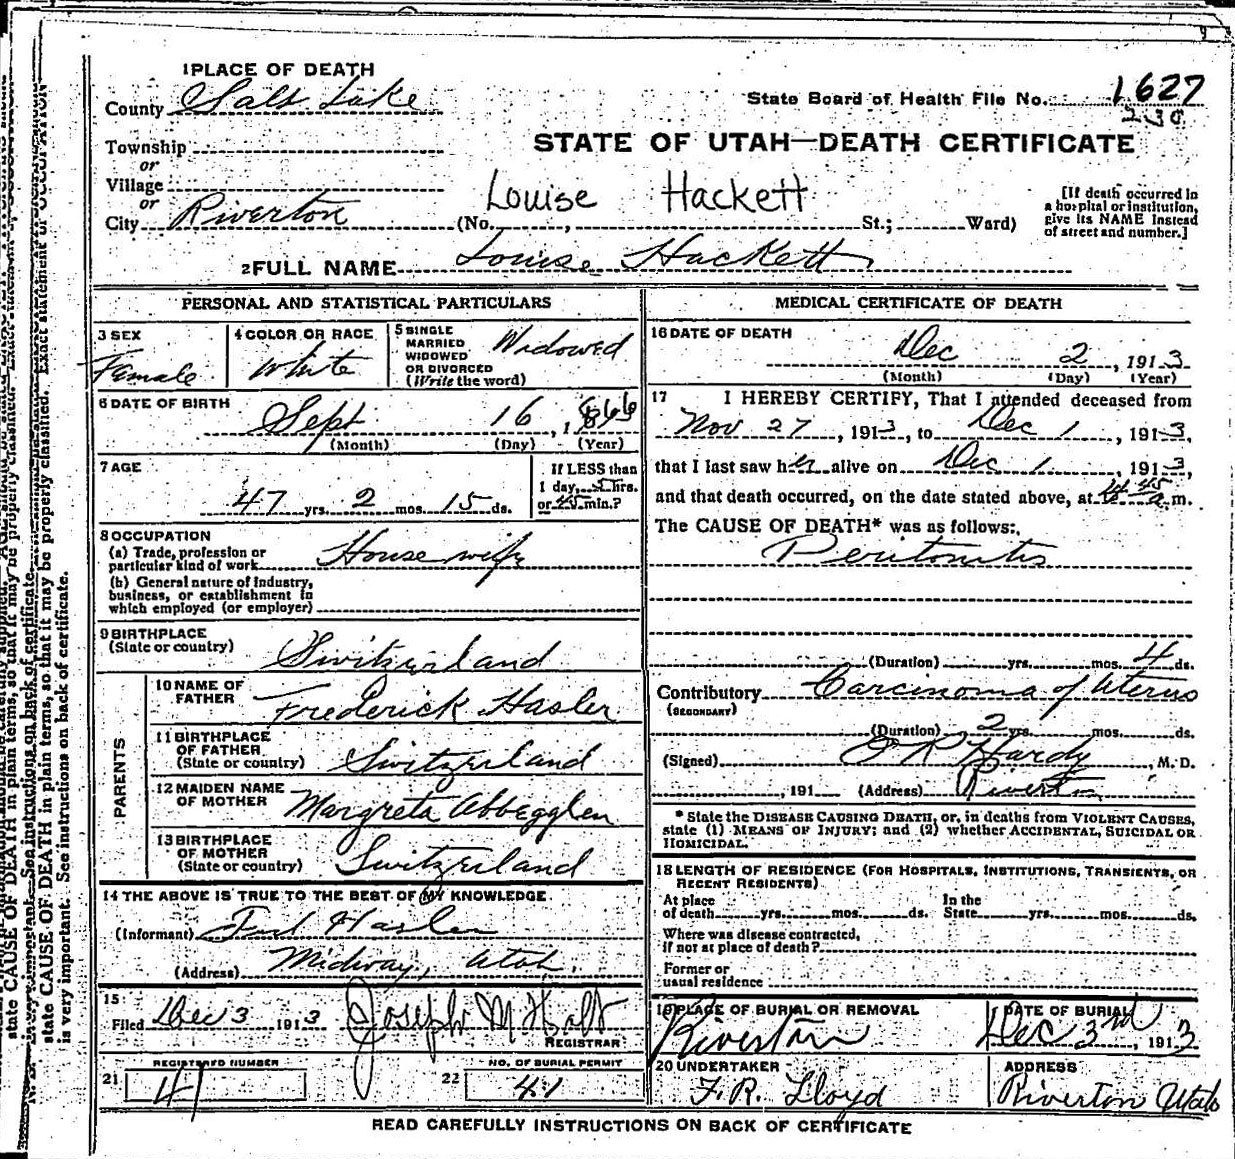 1 PLACE OF DEATH
County Salt Lake
State Board of Health File No. 1627
230
Township
or
Village
or
City Riverton
STATE OF UTAH—DEATH CERTIFICATE
Louise Hackett
(No. , St.; Ward)
[If death occurred in
a hospital or institution,
give its NAME instead
of street and number.]
2 FULL NAME Louise Hackett
PERSONAL AND STATISTICAL PARTICULARS
3 SEX
Female
4 COLOR OR RACE
White
5 SINGLE
MARRIED
WIDOWED
OR DIVORCED
(Write the word)
Widowed
6 DATE OF BIRTH
Sept 16, 1866
(Month) (Day) (Year)
7 AGE
47 yrs. 2 mos. 15 ds.
If LESS than
1 day, hrs.
or 45 min.?
8 OCCUPATION
(a) Trade, profession or
particular kind of work House wife
(b) General nature of Industry,
business, or establishment in
which employed (or employer)
9 BIRTHPLACE
(State or country) Switzerland
PARENTS
10 NAME OF
FATHER Frederick Hasler
11 BIRTHPLACE
OF FATHER
(State or country) Switzerland
12 MAIDEN NAME
OF MOTHER Margreta Abbegglen
13 BIRTHPLACE
OF MOTHER
(State or country) Switzerland
14 THE ABOVE IS TRUE TO THE BEST OF MY KNOWLEDGE
(Informant) Fred Hasler
(Address) Midway, Utah.
15
Filed Dec 3 1913 Joseph M Holt
REGISTRAR
REGISTERED NUMBER
21 41
NO. OF BURIAL PERMIT
22 41
MEDICAL CERTIFICATE OF DEATH
16 DATE OF DEATH
Dec 2, 1913
(Month) (Day) (Year)
17 I HEREBY CERTIFY, That I attended deceased from
Nov 27, 1913, to Dec 1, 1913,
that I last saw her alive on Dec 1, 1913,
and that death occurred, on the date stated above, at 45 a m.
The CAUSE OF DEATH* was as follows:
Peritonitis
(Duration) yrs. mos. 4 ds.
Contributory Carcinoma of Uterus
(SECONDARY)
(Duration) 2 yrs. mos. ds.
(Signed) O R Hardy, M. D.
, 191 (Address) Riverton
* State the DISEASE CAUSING DEATH, or, in deaths from VIOLENT CAUSES,
state (1) MEANS OF INJURY; and (2) whether ACCIDENTAL, SUICIDAL OR
HOMICIDAL.
18 LENGTH OF RESIDENCE (FOR HOSPITALS, INSTITUTIONS, TRANSIENTS, OR
RECENT RESIDENTS)
At place
of death yrs. mos. ds.
In the
State yrs. mos. ds.
Where was disease contracted,
if not at place of death?
Former or
usual residence
19 PLACE OF BURIAL OR REMOVAL
Riverton
DATE OF BURIAL
Dec 3rd, 1913
20 UNDERTAKER
F. R. Lloyd
ADDRESS
Riverton Utah
READ CAREFULLY INSTRUCTIONS ON BACK OF CERTIFICATE
state CAUSE OF DEATH in plain terms, so that it may be properly classified. Exact statement of OCCUPATION
is very important. See instructions on back of certificate.